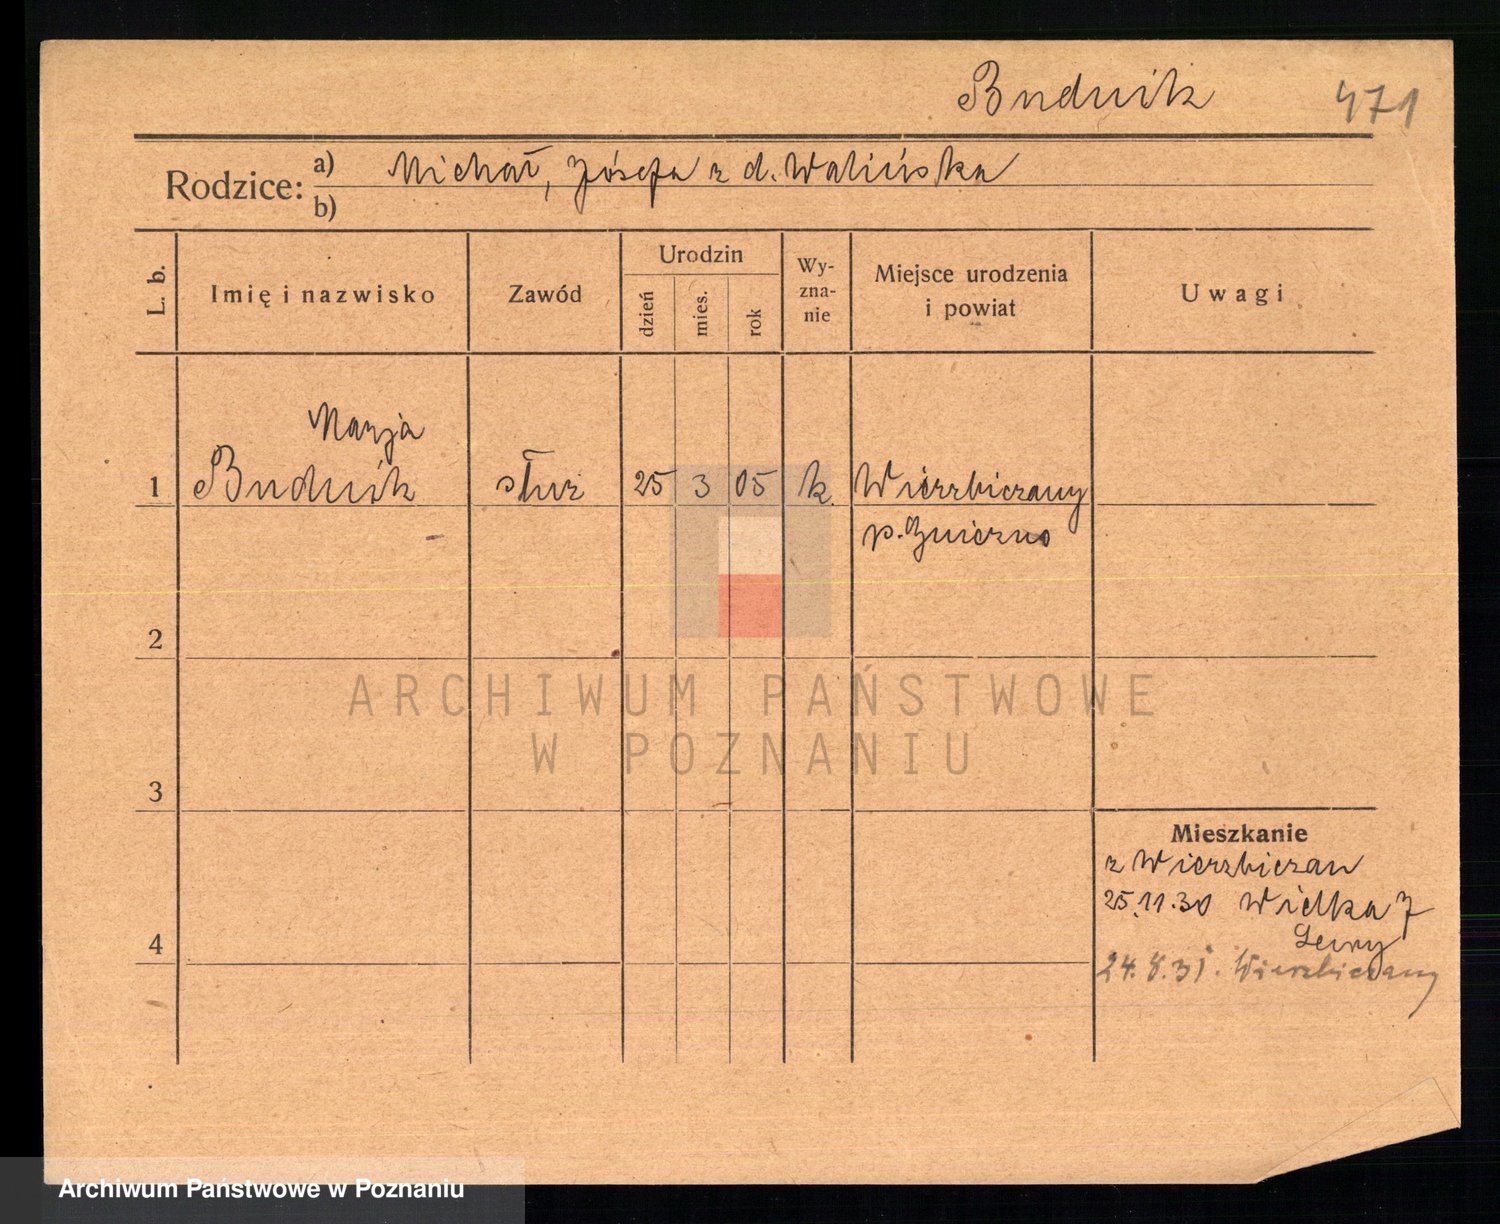 Budnik 471
Rodzice: a) Michał, Józefa z d. Walińska
b)
L. b. Imię i nazwisko Zawód Urodzin Wy-zna-nie Miejsce urodzenia i powiat Uwagi
dzień mies. rok
Marja
1 Budnik służ 25 3 05 k. Wierzbiczany
p. Gniezno
2
ARCHIWUM PAŃSTWOWE
W POZNANIU
3
Mieszkanie
z Wierzbiczan
25.11.30 Wielka 7
4
24.8.31. Wierzbiczany
Archiwum Państwowe w Poznaniu